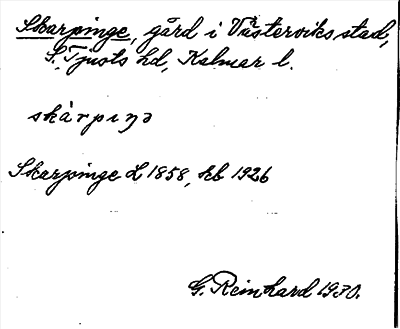 Skarpinge, gård i Västerviks stad,
S. Tjusts hd, Kalmar l.
skàrpıŋə
Skarpinge L 1858, kb 1926
G. Reinhard 1930.